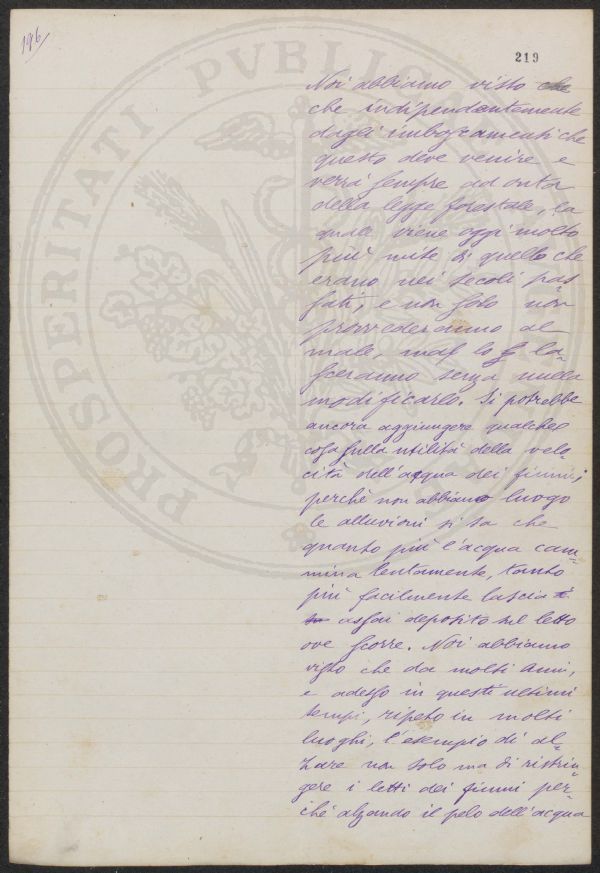 196/
219
PROSPERITATI PVBLIC
Noi abbiamo visto che
che indipendentemente
dagli imbograamenti che
questo deve venire e
verrà sempre ad onta
della legge forestale, la
quale viene oggi molto
più mite di quello che
erano nei secoli pas
sati, e non solo non
provvederanno al
male, ma lo la-
sceranno senza nulla
modificarlo. Si potrebbe
ancora aggiungere qualche
cosa sulla utilità della velo-
cità dell'acqua dei fiumi;
perchè non abbiano luogo
le alluvioni si sa che
quanto più l'acqua cam-
mina lentamente, tanto
più facilmente lascia
assai deposito nel letto
ove scorre. Noi abbiamo
visto che da molti anni,
e adesso in questi ultimi
tempi, ripeto in molti
luoghi, l'esempio di al-
zare non solo ma di ristrin
gere i letti dei fiumi per-
chè alzando il pelo dell'acqua